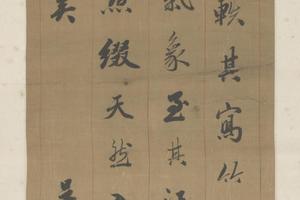 軼其寫竹
氣象至其
點綴天然
美